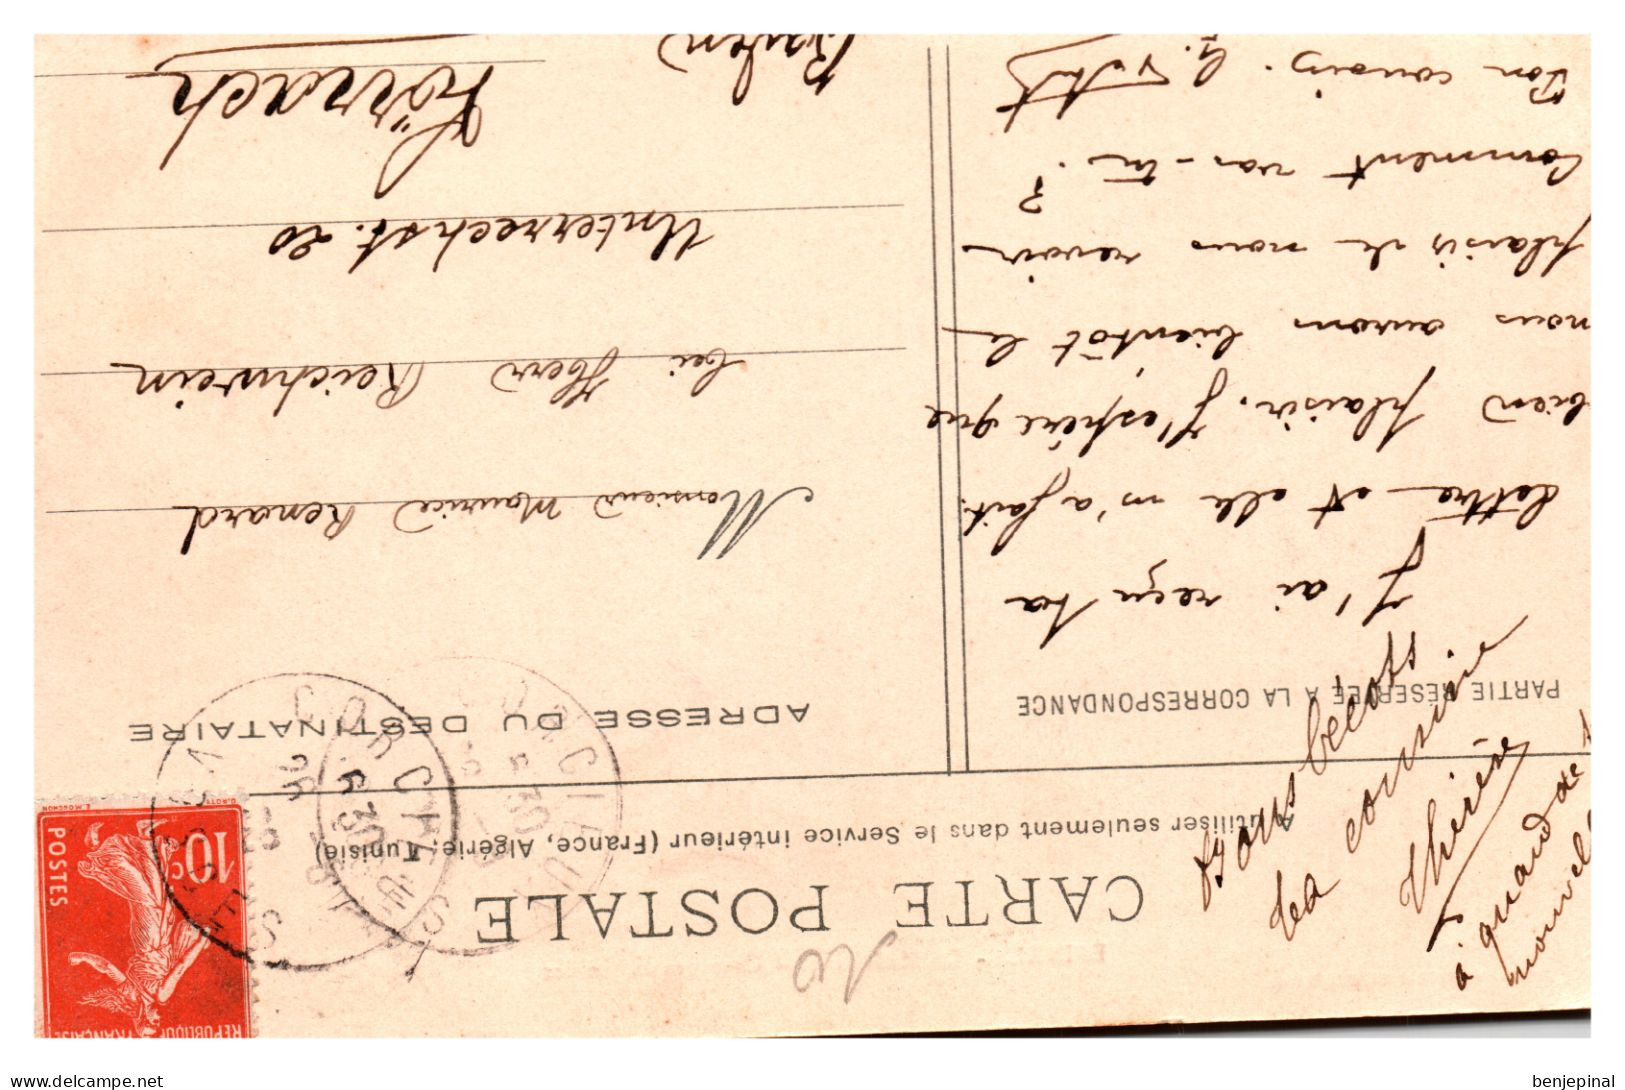 CARTE POSTALE
A utiliser seulement dans le Service intérieur (France, Algérie, Tunisie)
PARTIE RÉSERVÉE A LA CORRESPONDANCE
J'ai reçu ta
lettre et elle m'a fait
bien plaisir. J'espère que
nous aurons bientôt le
plaisir de nous revoir
Comment vas-tu ?
Ton cousin. G.
Bons bécots
ta cousine
Thérèse
à quand de
nouvel
ADRESSE DU DESTINATAIRE
Monsieur Maurice Renard
bei Herr Reichwein
Unterrechst. 20
Lörrach
Baden
10
RÉPUBLIQUE FRANÇAISE
10c
POSTES
E. MOUCHON
CORCIEUX
VOSGES
benjepinal